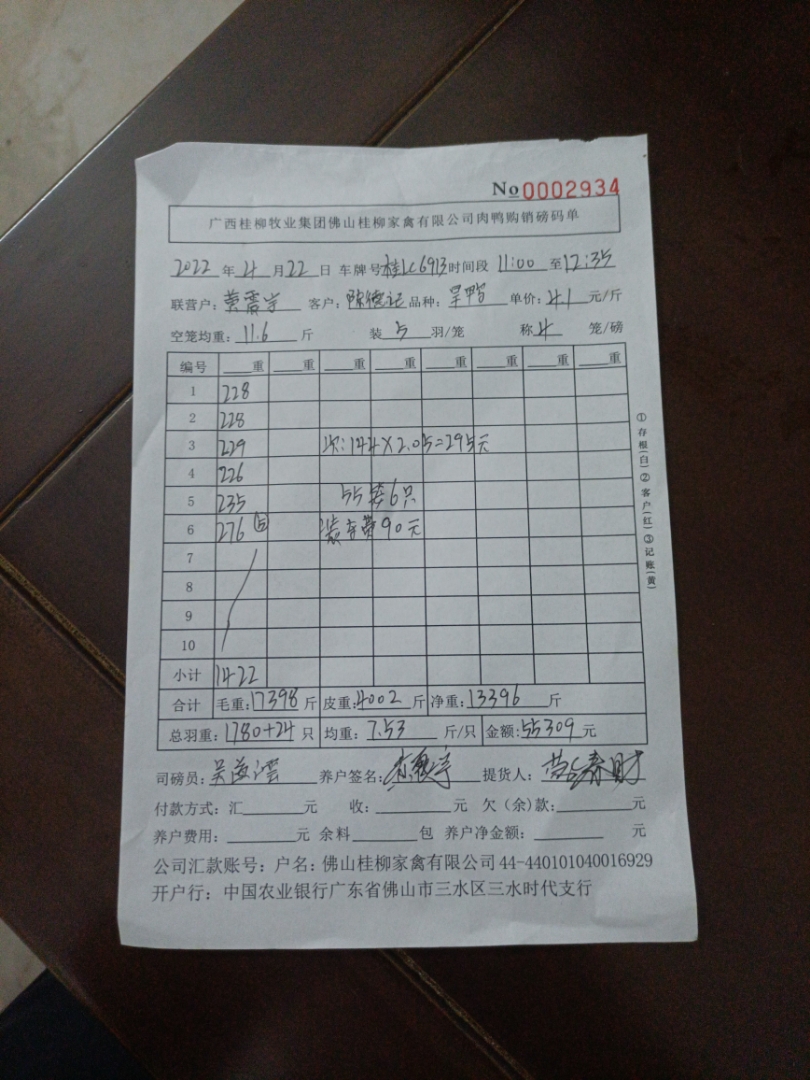 No 0002934
广西桂柳牧业集团佛山桂柳家禽有限公司肉鸭购销磅码单
2022 年 4 月 22 日 车牌号 桂LC6913 时间段 11:00 至 12:35
联营户： 客户：陈德记 品种： 单价：4.1 元/斤
空笼均重：11.6 斤 装 5 羽/笼 称 4 笼/磅
编号 重 重 重 重 重 重 重 重
1 228
2 228
3 229 次：144×2.05=295元
4 226
5 235 55 6只
6 276 装车费90元
7
8
9
10
小计 1422
合计 毛重：17398 斤 皮重：4002 斤 净重：13396 斤
总羽重：1780+24 只 均重：7.53 斤/只 金额：55309 元
司磅员： 养户签名： 提货人：
付款方式：汇 元 收： 元 欠（余）款： 元
养户费用： 元 余料 包 养户净金额： 元
公司汇款账号：户名：佛山桂柳家禽有限公司 44-440101040016929
开户行：中国农业银行广东省佛山市三水区三水时代支行
①存根(白)②客户(红)③记账(黄)